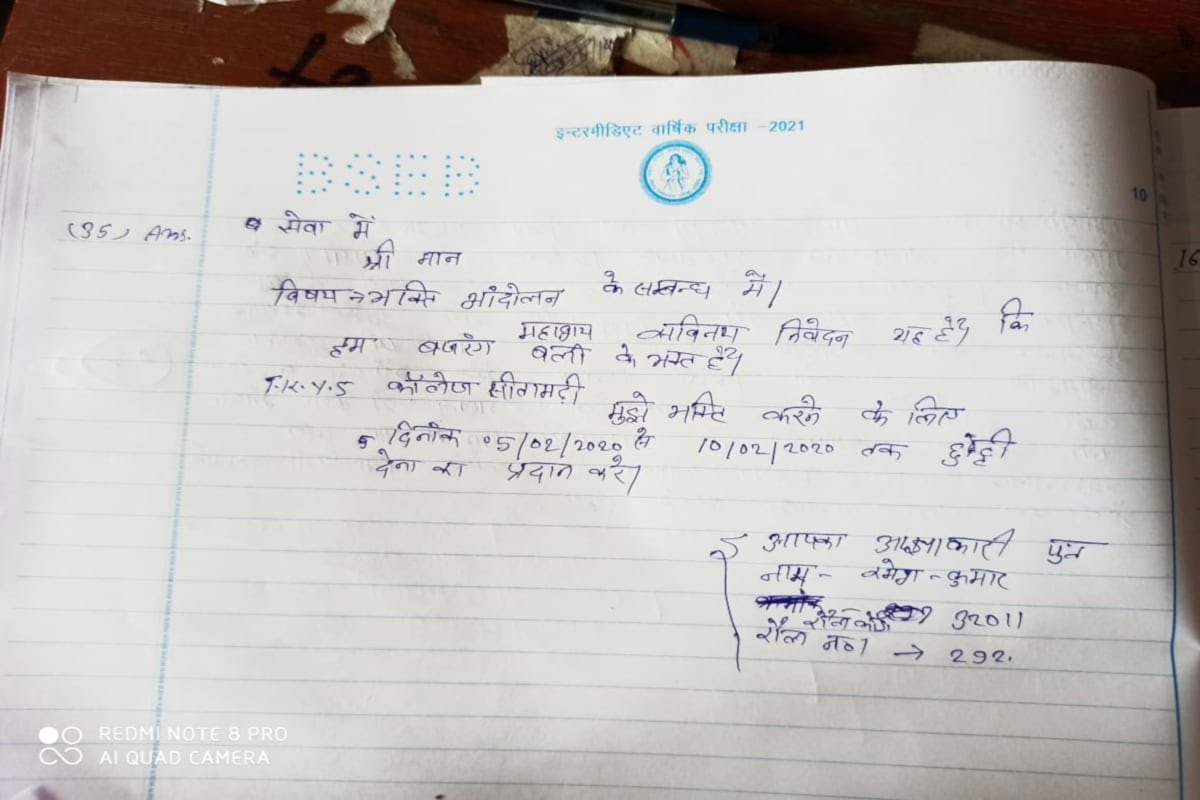 इन्टरमीडिएट वार्षिक परीक्षा -2021
BSEB
10
16
(35) Ans. सेवा में
श्री मान
विषय → भक्ति आंदोलन के सम्बन्ध में।
महाशय सविनय निवेदन यह है कि
हम बजरंग बली के भक्त है।
T.K.Y.S कॉलेज सीतामढ़ी
मुझे भक्ति करने के लिए
दिनांक 05/02/2020 से 10/02/2020 तक छुट्टी
देना का प्रदान करे।
आपका आज्ञाकारी पुत्र
नाम - रमेश - कुमार
रौल कोड 32011
रौल न०। → 292.
REDMI NOTE 8 PRO
AI QUAD CAMERA